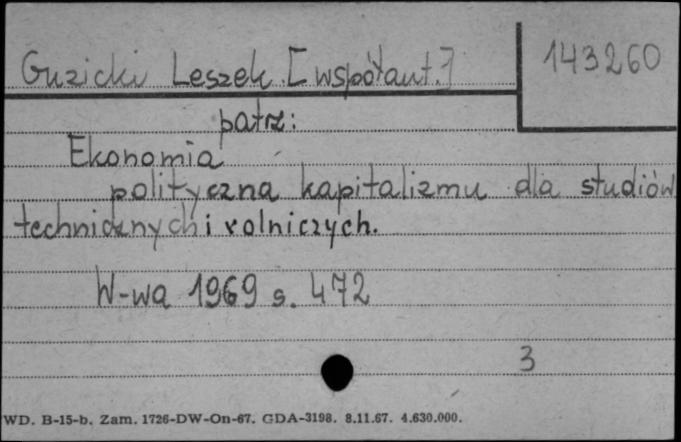 Guzicki Leszek [współaut.] 143260
patrz:
Ekonomia
polityczna kapitalizmu dla studiów
technicznych i rolniczych.
W-wa 1969 s. 472
3
WD. B-15-b. Zam. 1726-DW-On-67. GDA-3198. 8.11.67. 4.630.000.